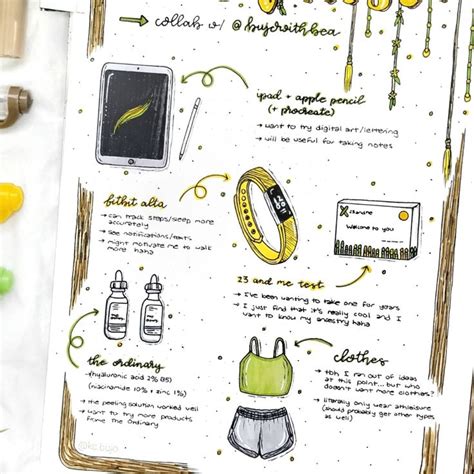 → collab w/ @bujowithbea
ipad + apple pencil
(+ procreate)
→ want to try digital art/lettering
→ will be useful for taking notes
fitbit alta
→ can track steps/sleep more
accurately
→ see notifications/texts
→ might motivate me to walk
more haha
23andme
Welcome to you
23 and me test
→ I've been wanting to take one for years
→ I just find that it's really cool and I
want to know my ancestry haha
the ordinary
→ hyaluronic acid 2% (B5)
→ (niacinamide 10% + zinc 1%)
→ the peeling solution worked well
→ want to try more products
from The Ordinary
clothes
→ tbh I ran out of ideas
at this point... but who
doesn't want more clothes?
→ literally only wear athleisure
(should probably get other types
as well)